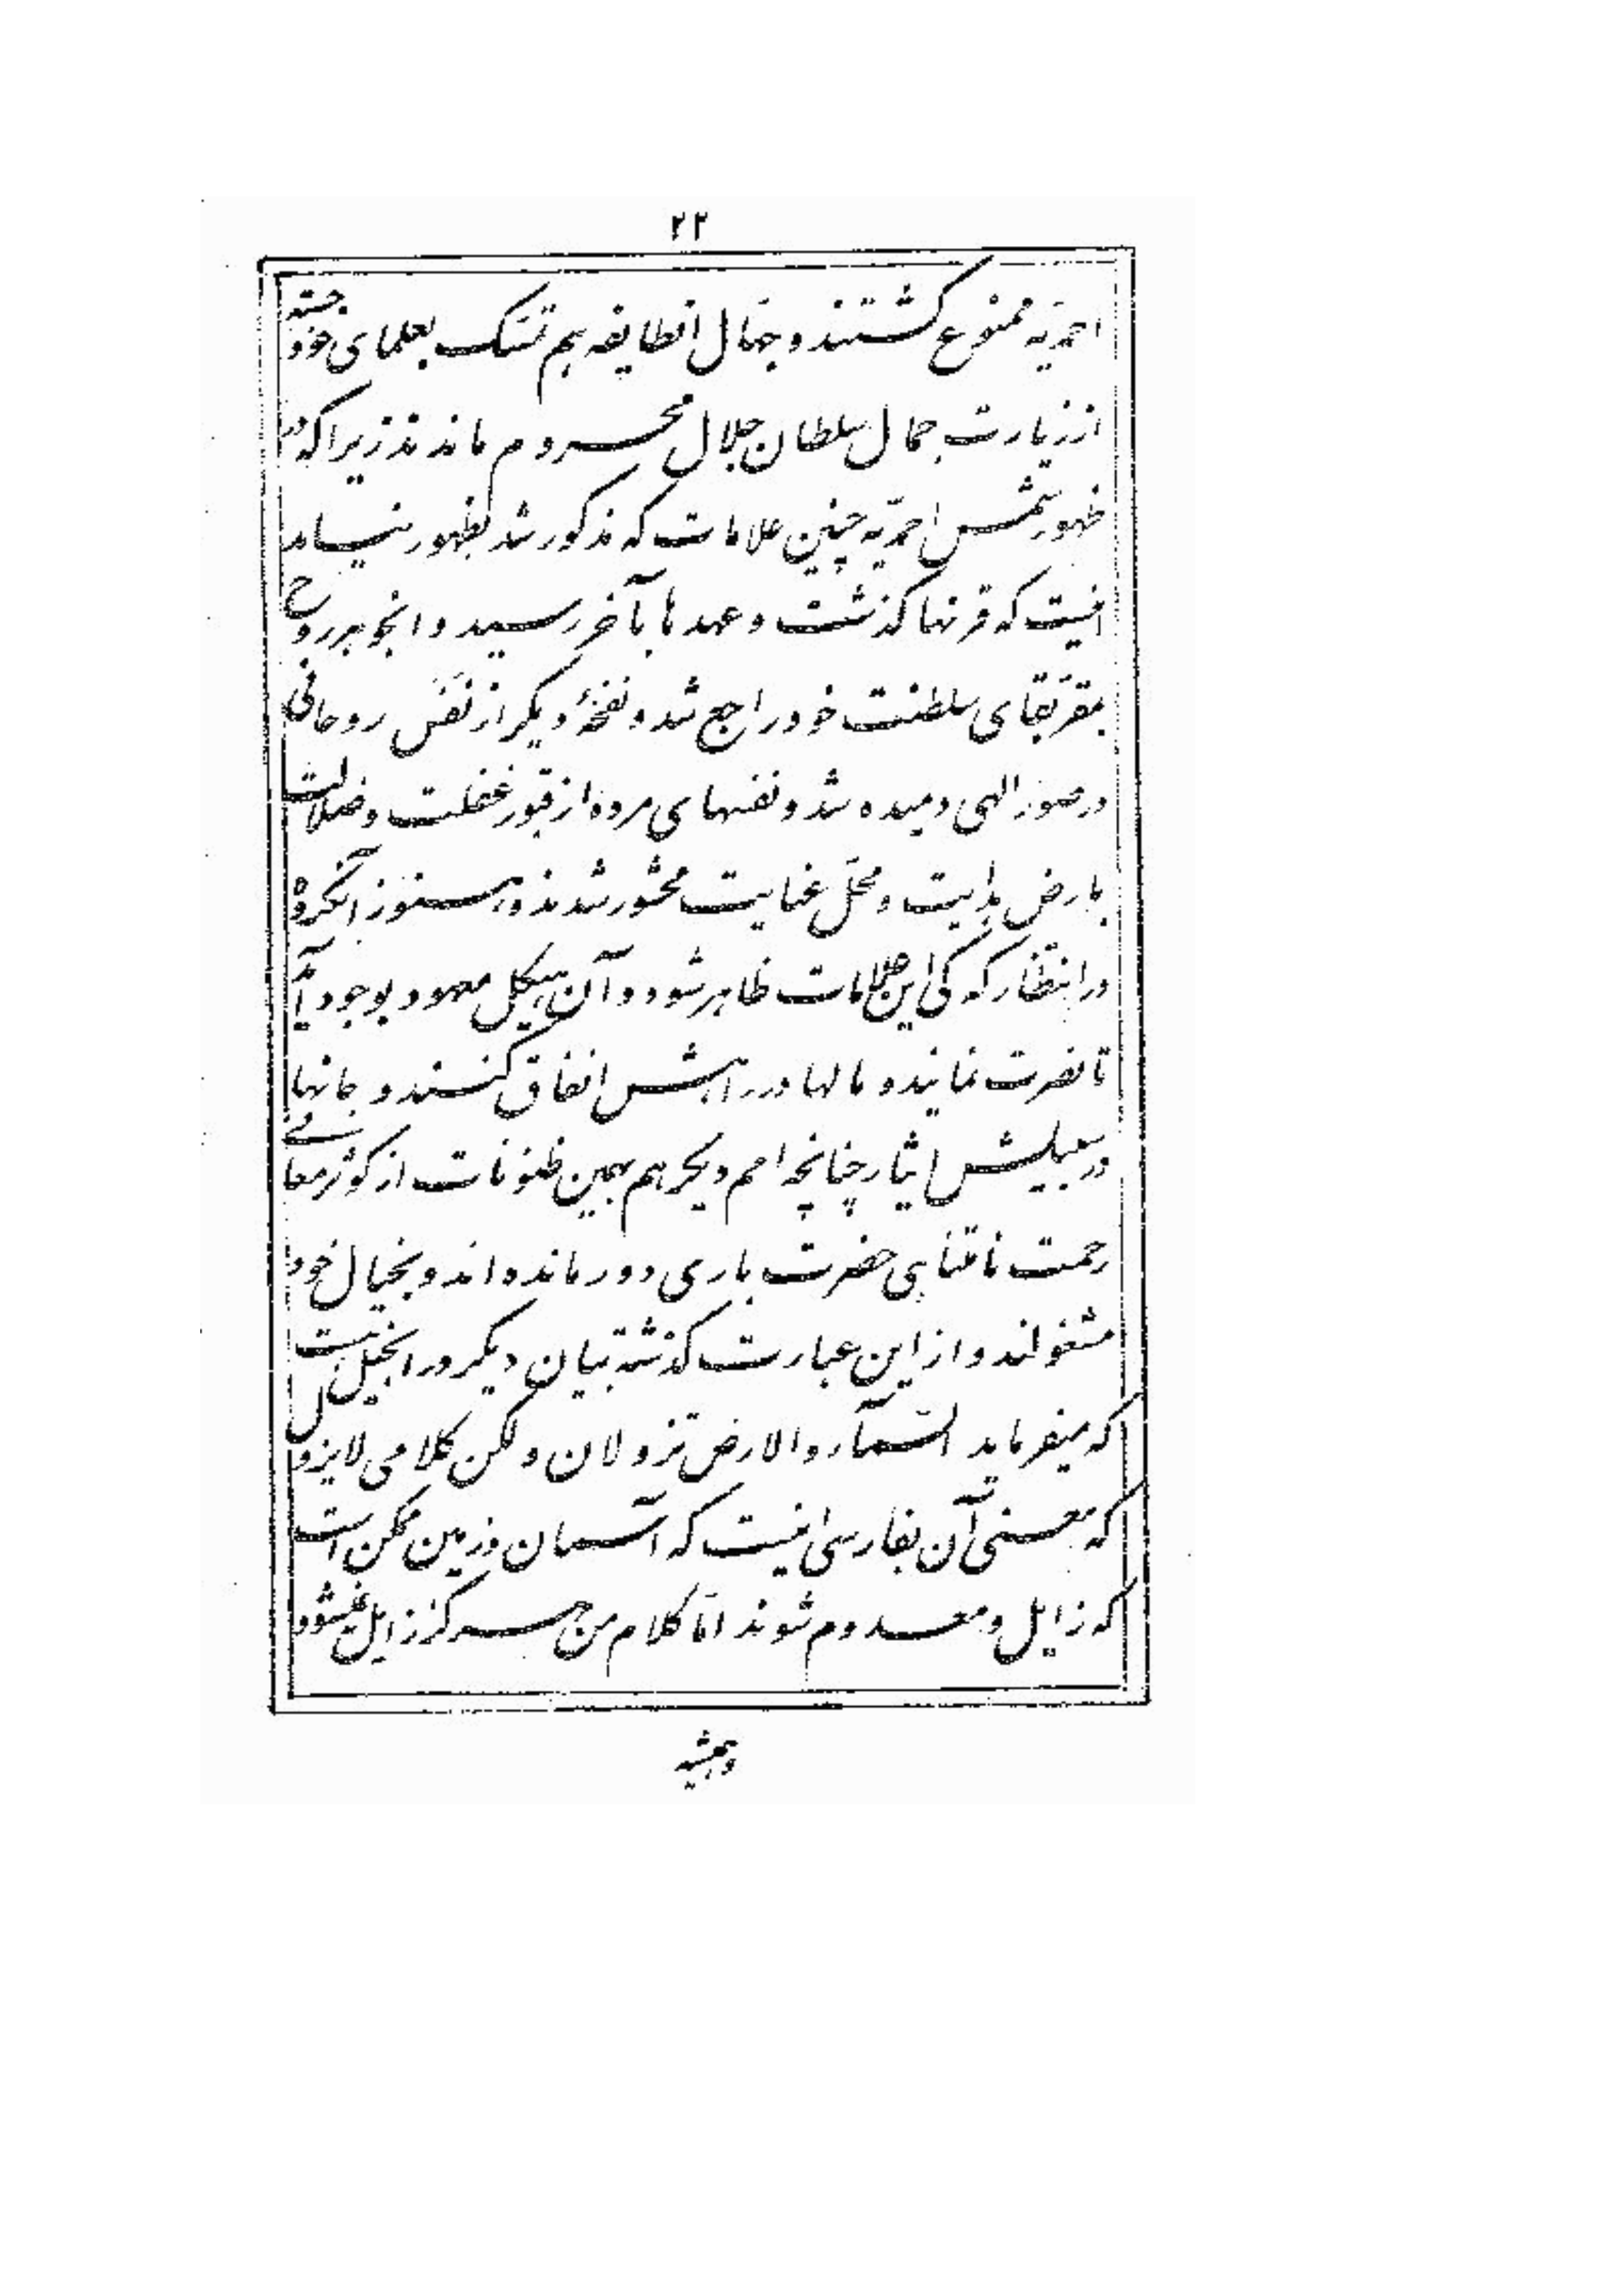 ۲۲
احمدیّه ممنوع گشتند و جهّال انطایفه هم تمسّک بعلمای خود جسته
از زیارت جمال سلطان جلال محروم ماندند زیرا که در
ظهور شمس احمدیّه چنین علامات که مذکور شد بظهور نیامد
اینست که قرنها گذشت و عهدها بآخر رسید و انجوهر روح
بمقرّ بقای سلطنت خود راجع شد و نفخهٴ دیگر از نَفَس روحانی
در صور الهی دمیده شد و نفسهای مرده از قبور غفلت و ضلالت
بارض هدایت و محلّ عنایت محشور شدند و هنوز آنگروه
در انتظار که کی این علامات ظاهر شود و آن هیکل معهود بوجود آید
تا نصرت نمایند و مالها در راهش انفاق کنند و جانها
در سبیلش ایثار چنانچه امم دیگر هم بهمین ظنونات از کوثر معانی
رحمت نامتناهی حضرت باری دور مانده‌اند و بخیال خود
مشغولند و از این عبارت گذشته بیان دیگر در انجیل هست
که میفرماید السّمآء والارض تزولان ولکن کلامی لایزول
که معنی آن بفارسی اینست که آسمان و زمین ممکن است
که زایل و معدوم شوند امّا کلام من هرگز زایل نمیشود
و همیشه